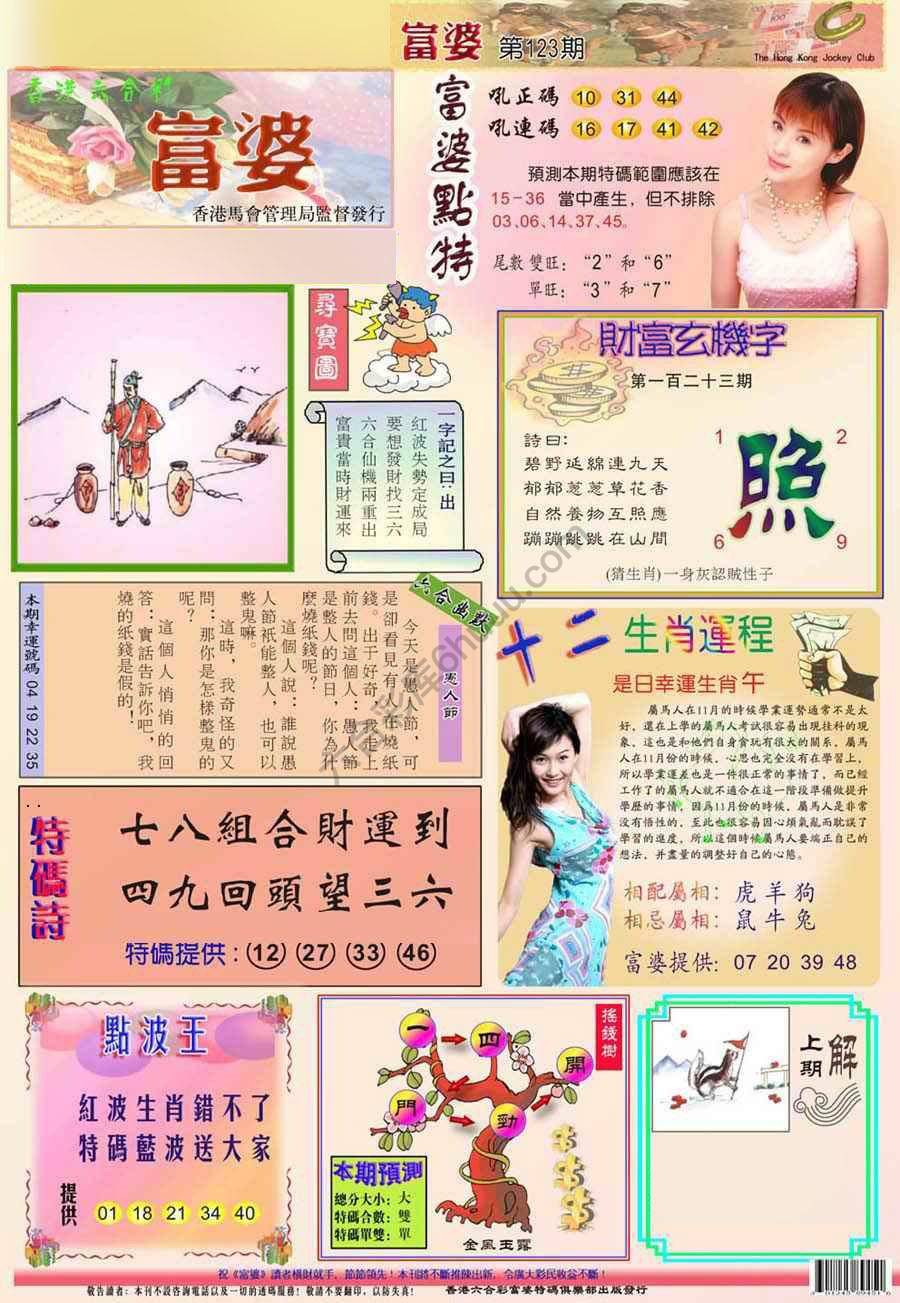 富婆 第123期
The Hong Kong Jockey Club
香港六合彩
富婆
香港馬會管理局監督發行
富婆點特
吼正碼 10 31 44
吼連碼 16 17 41 42
預測本期特碼範圍應該在
15-36 當中產生，但不排除
03、06、14、37、45。
尾數雙旺：“2”和“6”
單旺：“3”和“7”
尋寶圖
一字記之曰：出
紅波失勢定成局
要想發財找三六
六合仙機兩重出
富貴當時財運來
財富玄機字
第一百二十三期
詩曰：
碧野延綿連九天
郁郁蔥蔥草花香
自然養物互照應
蹦蹦跳跳在山間
照
1
2
6
9
(猜生肖)一身灰認賊性子
六合幽默
愚人節
今天是愚人節，可
是卻看見有人在燒紙
錢。出于好奇，我走上
前去問這個人：愚人節
是整人的節日，你為什
麼燒紙錢呢？
這個人說：誰說愚
人節衹能整人，也可以
整鬼嘛。
這時，我奇怪的又
問：那你是怎樣整鬼的
呢？
這個人悄悄的回
答：實話告訴你吧，我
燒的紙錢是假的！
本期幸運號碼 04 19 22 35
十二生肖運程
是日幸運生肖 午
屬馬人在11月的時候學業運勢通常不是太
好，還在上學的屬馬人考試很容易出現挂科的現
象，這也是和他們自身貪玩有很大的關系，屬馬
人在11月份的時候，心思也完全没有在學習上，
所以學業運差也是一件很正常的事情了，而已經
工作了的屬馬人就不適合在這一階段準備做提升
學歷的事情，因爲11月份的時候，屬馬人是非常
没有悟性的，至此也很容易因心煩氣亂而耽誤了
學習的進度，所以這個時候屬馬人要端正自己的
想法，并盡量的調整好自己的心態。
相配屬相：虎羊狗
相忌屬相：鼠牛兔
富婆提供：07 20 39 48
特碼詩
七八組合財運到
四九回頭望三六
特碼提供：(12) (27) (33) (46)
點波王
紅波生肖錯不了
特碼藍波送大家
提供
01 18 21 34 40
搖錢樹
一 四 開
門 勁
本期預測
總分大小：大
特碼合數：雙
特碼單雙：單
金風玉露
上期
解
祝《富婆》讀者橫財就手，節節領先！本刊將不斷推陳出新，令廣大彩民收益不斷！
敬告讀者：本刊不設咨詢電話以及一切的透碼服務！敬請不要翻印，以防失真！
香港六合彩富婆特碼俱樂部出版發行